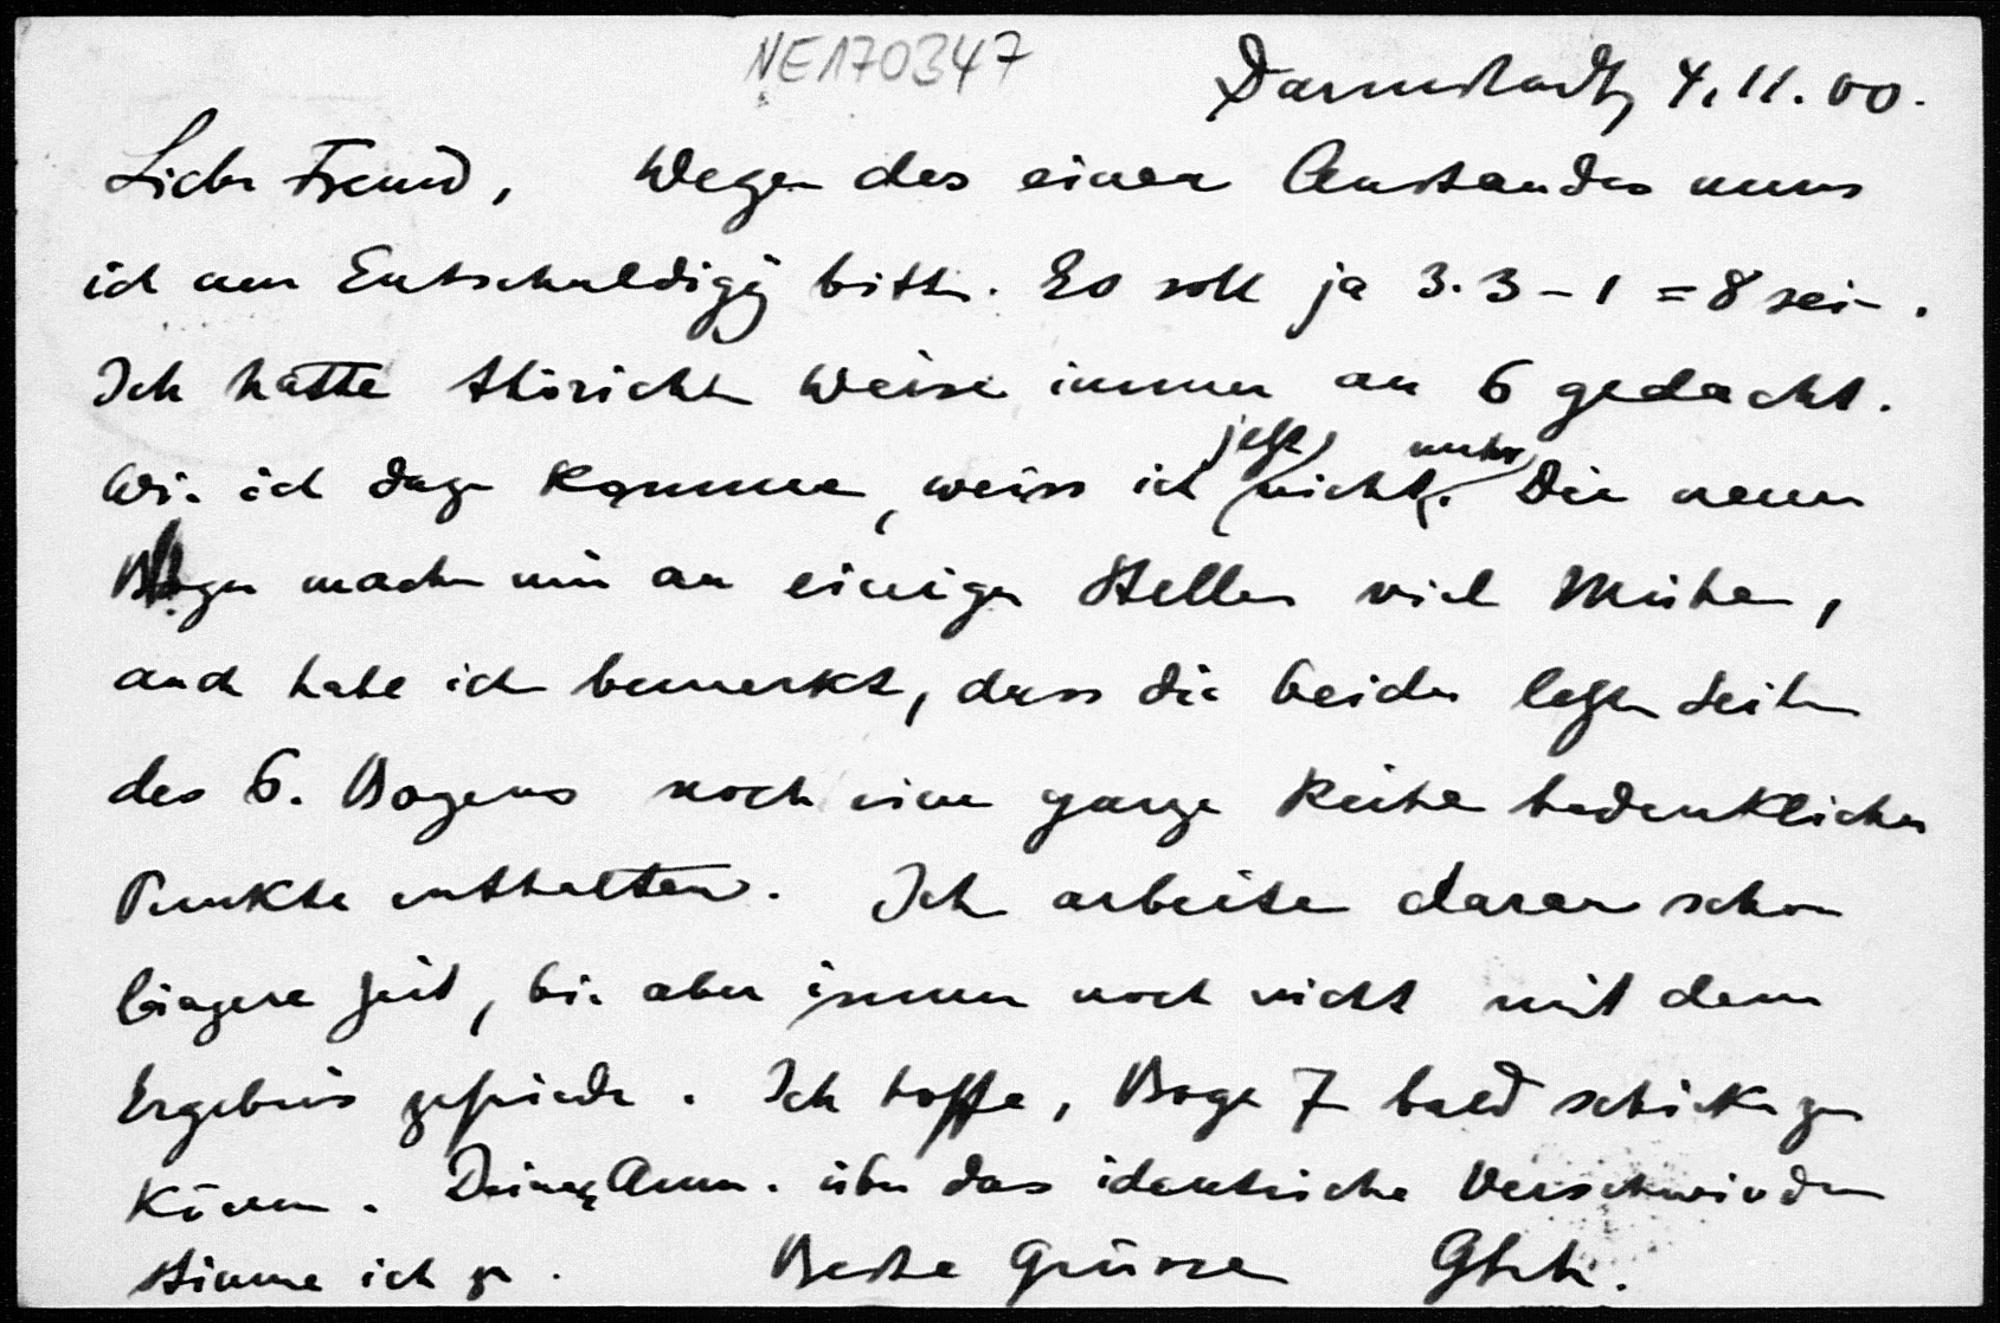 NE170347
Darmstadt, 4.11.00.
Lieber Freund, Wegen des einen Anstandes muss
ich um Entschuldigg bitten. Es soll ja 3.3-1=8 sein.
Ich hatte thörichter Weise immer an 6 gedacht.
Wie ich dazu komme, weiss ich jetzt nicht mehr. Die neuen
Bogen machen mir an einigen Stellen viel Mühen,
auch habe ich bemerkt, dass die beiden letzten Seiten
des 6. Bogens noch eine ganze Reihe bedenklicher
Punkte enthalten. Ich arbeite daran schon
längere Zeit, bin aber immer noch nicht mit dem
Ergebnis zufrieden. Ich hoffe, Bogen 7 bald schicken zu
können. Deiner Anm. über das identische Verschwinden
stimme ich zu. Beste Grüsse